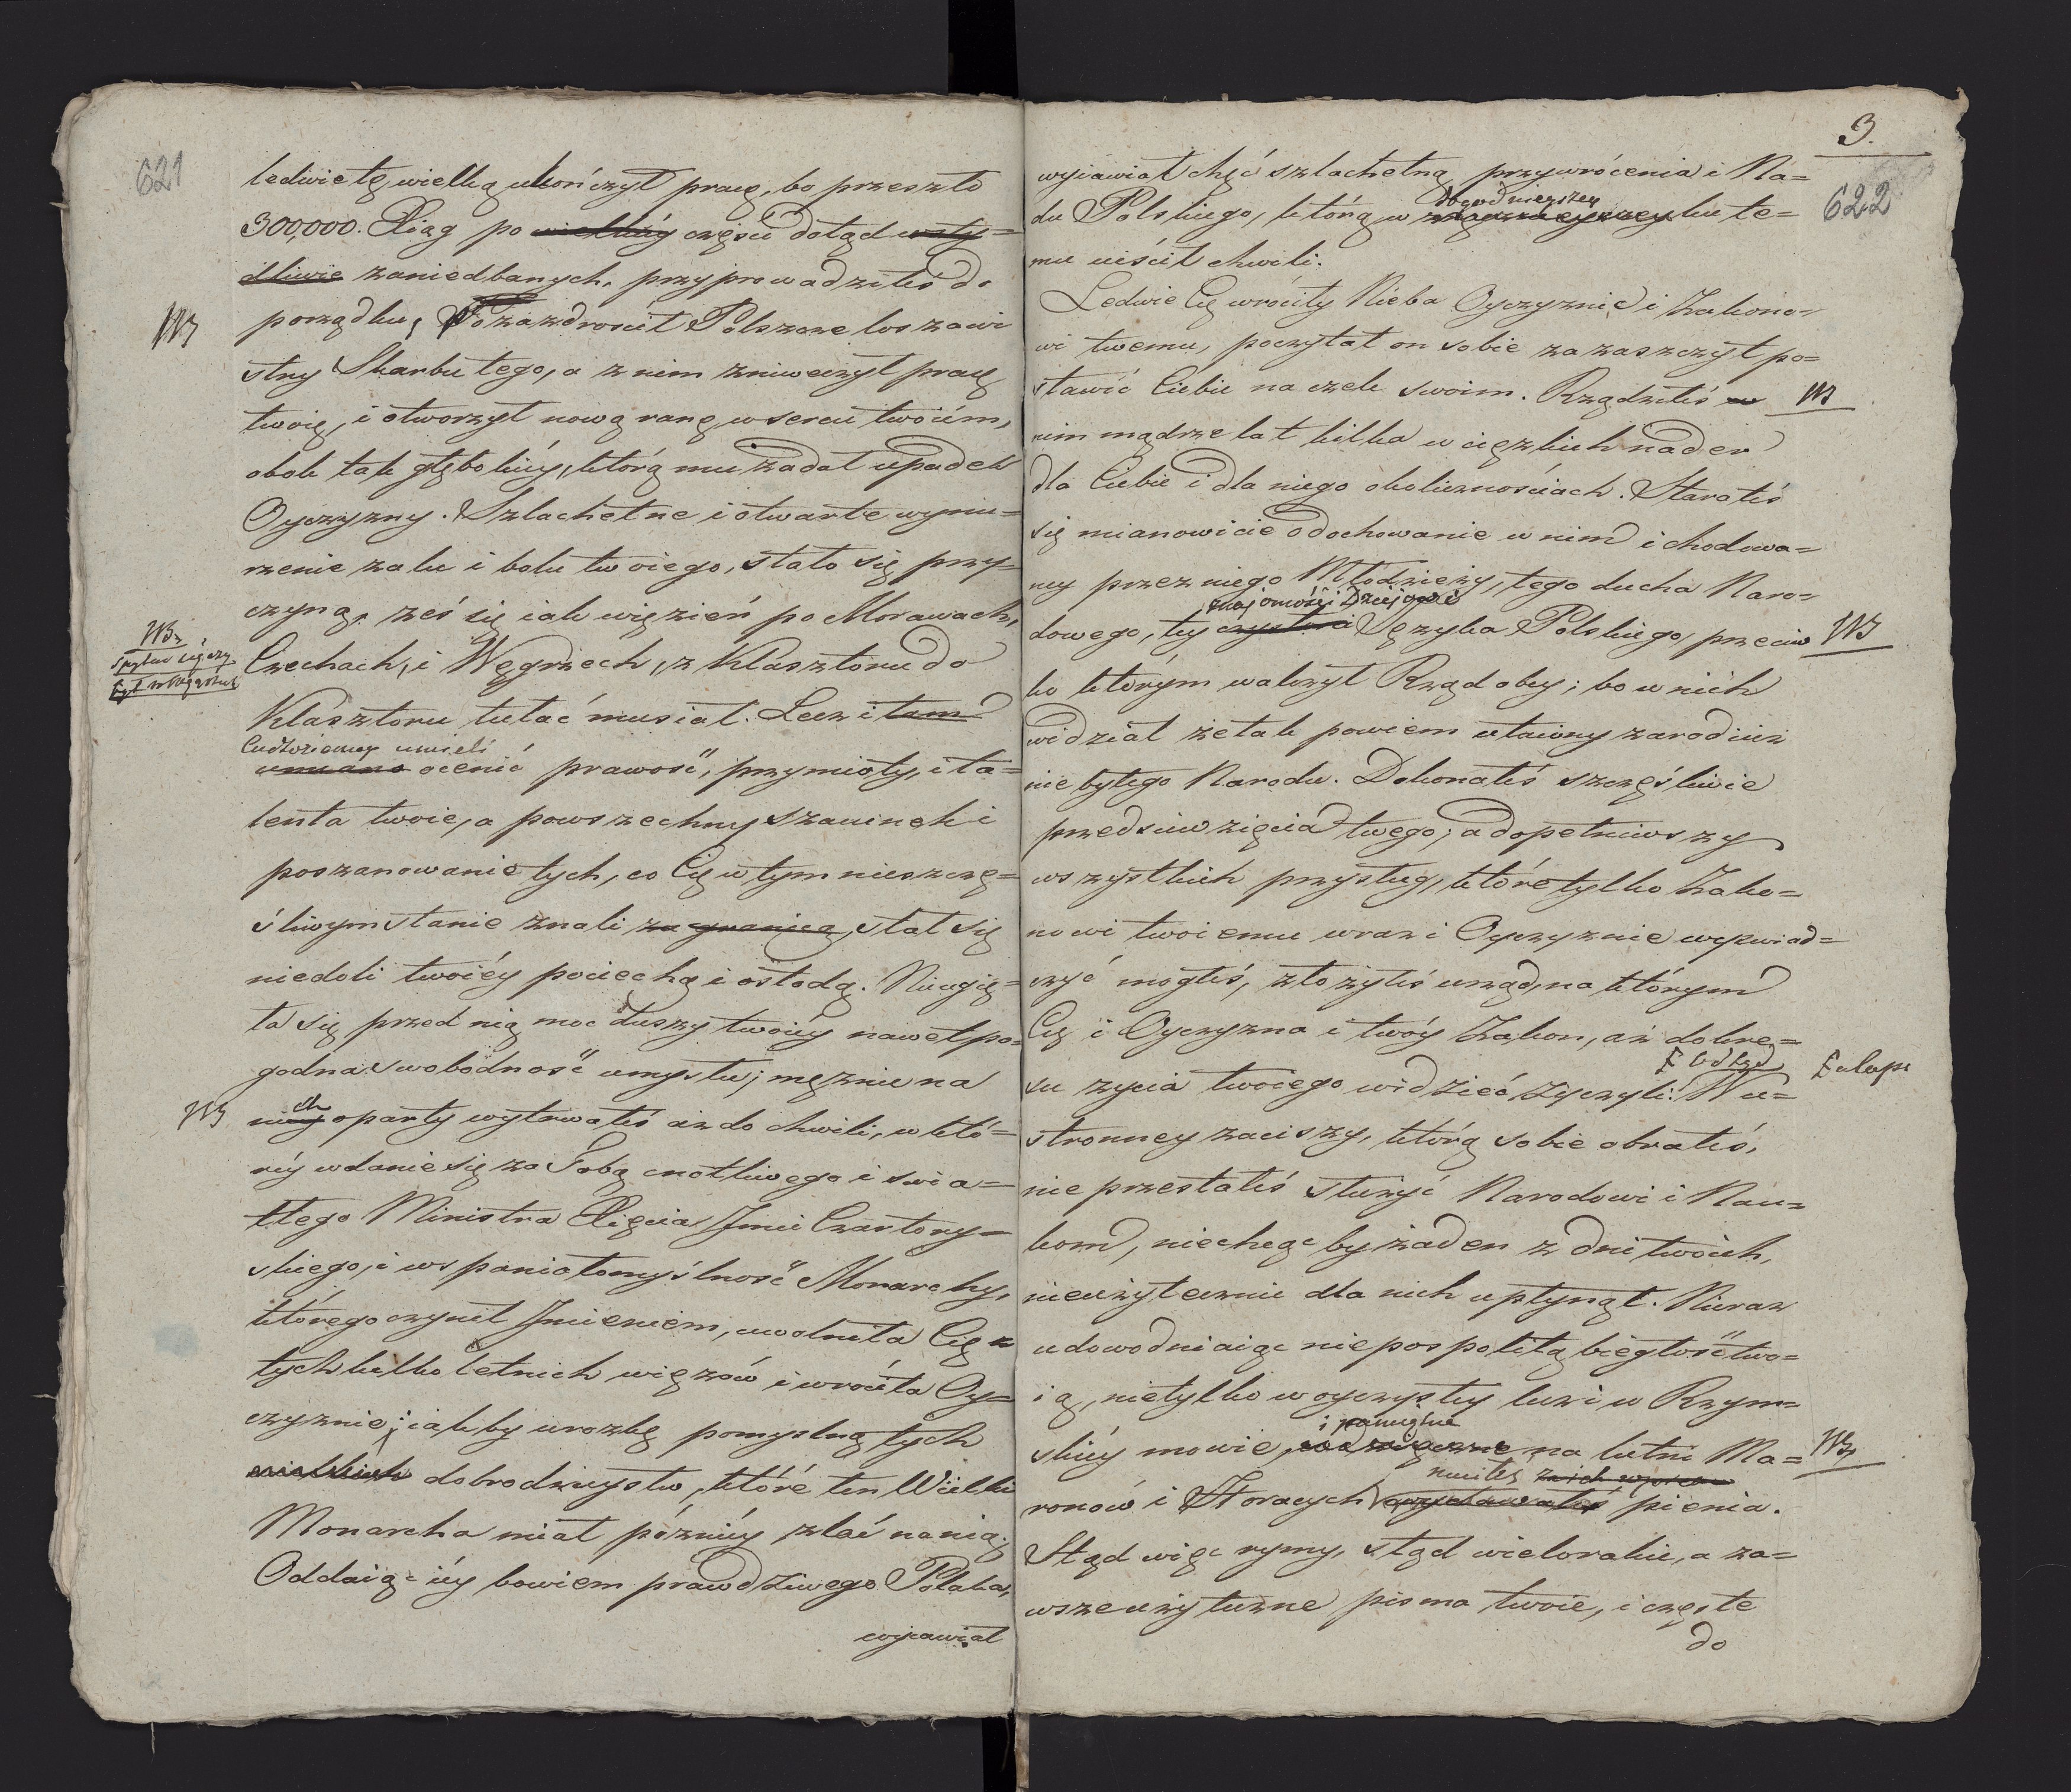 621
ledwie tę wielką ukończył pracę, bo przeszło
300,000. Xiąg po wielkiéy części dotąd wsty=
dliwie zaniedbanych, przyprowadziłeś do
NB porządku, Pozazdrościł Polszcze los zawi
stny Skarbu tego, a z nim zniweczył pracę
twoię, i otworzył nową ranę w sercu twoiém,
obok tak głębokiéy, którą mu zadał upadek
Oyczyzny. Szlachetne i otwarte wynu=
rzenie żalu i bolu twoiego, stało się przy=
czyną, żeś się iak więzień po Morawach,
NB.
Spytać się czy
był w Węgrzech
Czechach, i Węgrzech, z Klasztoru do
Klasztoru tułać musiał. Lecz i tam
Cudzoziemcy umieli
umiano ocenić prawość, przymioty, i ta=
lenta twoie, a powszechny szacunek i
poszanowanie tych, co Cię w tym nieszczę=
śliwym stanie znali za granicą, stał się
niedoli twoiéy pociechą i osłodą. Nieugię=
ta się przed nią moc duszy twoiéy nawet po=
godna swobodność umysłu; mężnie na
NB niéy ch oparty wytrwałeś aż do chwili, w któ=
réy wdanie się za Tobą cnotliwego i świa=
tłego Ministra Xięcia Jmci Czartory=
skiego, i wspaniałomyślność Monarchy,
którego czynił Imieniem, uwolniła Cię z
tych kilko letnich więzów i wróciła Oy=
czyznie; iakby wrózbę pomyślną tych
wielkich dobrodzieystw, któré ten Wielki
Monarcha miał późniéy zlać na nią;
Oddaiąc iéy bowiem prawdziwego Polaka,
wyiawiał
3.
622
wyiawiał chęć szlachetną przywrócenia i Na=
dogodnieyszey
du Polskiego, którą w ku te=
mu uiścił chwili.
Ledwie Cię wróciły Nieba Oyczyznie i Zakono=
wi twemu, poczytał on sobie za zaszczyt po=
stawić Ciebie na czele swoim. Rządziłeś w NB
nim mądrze lat kilka w ciężkich nader
dla Ciebie i dla niego okolicznościach. Starałeś
się mianowicie o dochowanie w nim i chodowa=
ney przez niego Młodzieży, tego ducha Naro=
znajomości Dziejow i
dowego, tey czystości Języka Polskiego, przeciw NB
ko którym walczył Rząd obcy; bo w nich
widział że tak powiem utaiony zarod ieszcze
nie byłego Narodu. Dokonałeś szczęśliwie
przedsięwzięcia twego; a dopełniwszy
wszystkich przysług, które tylko Zako=
nowi twoiemu wraz i Oyczyznie wyświad=
czyć mogłeś, złożyłeś urząd, na którym
Cię i Oyczyzna i twóy Zakon, aż do kre=
Odtąd
su życia twoiego widzieć życzyli. W u=
stronney zaciszy, którą sobie obrałeś,
nie przestałeś służyć Narodowi i Nau=
kom, niechcąc by żaden z dni twoich,
nieużytecznie dla nich upłynął. Nieraz
udowodniaiąc niepospolitą biegłość two=
ią, nietylko w oyczystey lecz i w Rzym=
skiéy mowie, na lutni Ma= NB
nuciłeś
ronów i Horacych wydawałeś pienia.
Stąd więc rymy, stąd wielorakie, a za=
wsze użyteczne pisma twoie, i częste
do